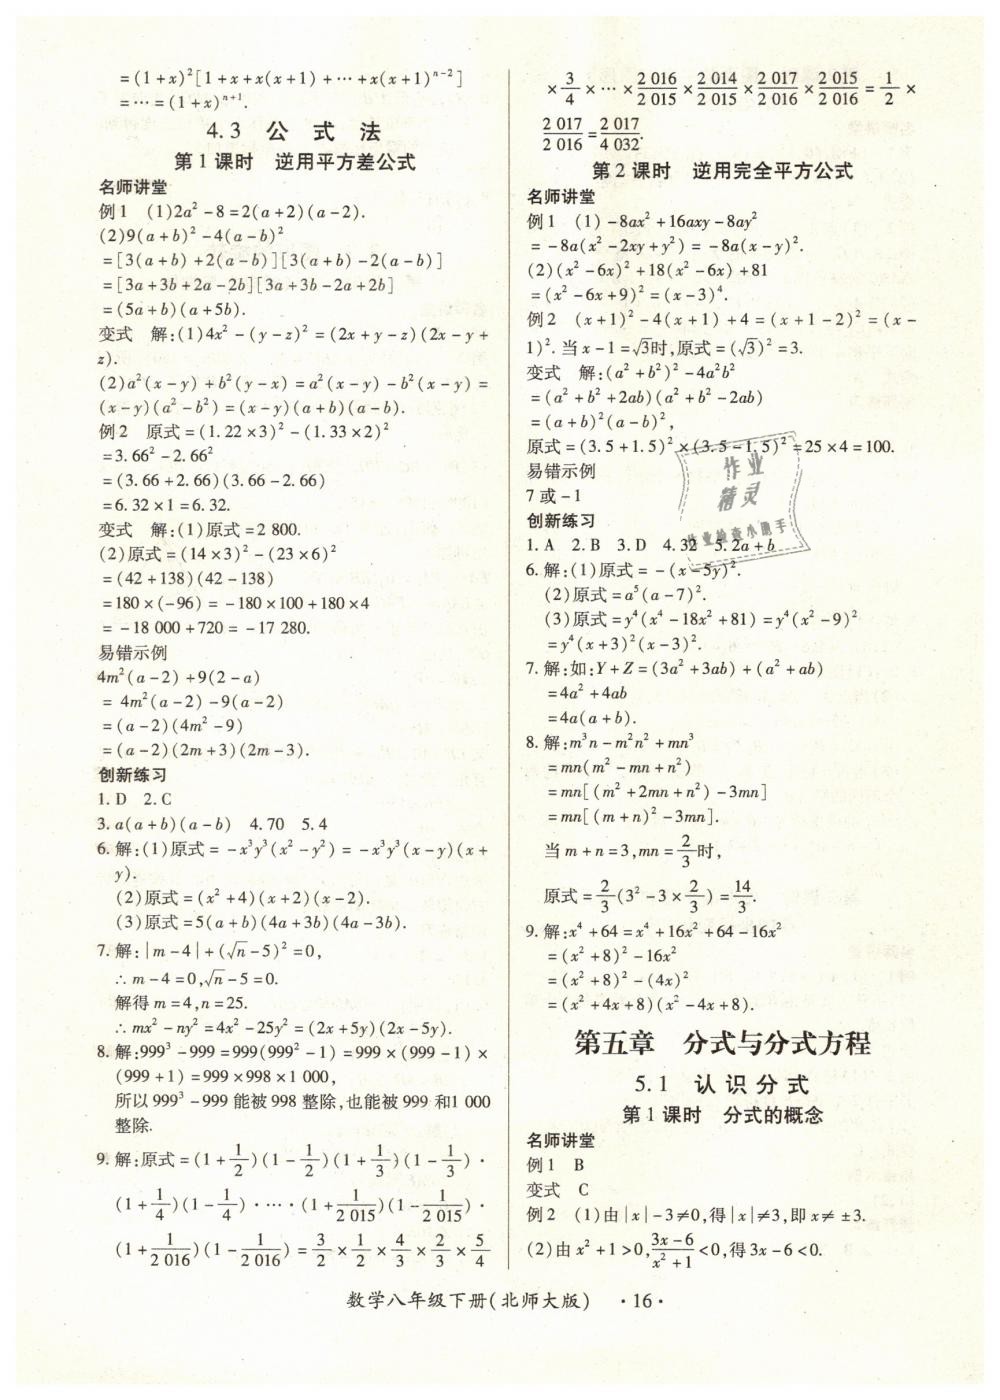 =(1+x)²[1+x+x(x+1)+…+x(x+1)ⁿ⁻²]
=…=(1+x)ⁿ⁺¹.
4.3 公式法
第1课时 逆用平方差公式
名师讲堂
例1 (1)2a²-8=2(a+2)(a-2).
(2)9(a+b)²-4(a-b)²
=[3(a+b)+2(a-b)][3(a+b)-2(a-b)]
=[3a+3b+2a-2b][3a+3b-2a+2b]
=(5a+b)(a+5b).
变式 解:(1)4x²-(y-z)²=(2x+y-z)(2x-y+
z).
(2)a²(x-y)+b²(y-x)=a²(x-y)-b²(x-y)=
(x-y)(a²-b²)=(x-y)(a+b)(a-b).
例2 原式=(1.22×3)²-(1.33×2)²
=3.66²-2.66²
=(3.66+2.66)(3.66-2.66)
=6.32×1=6.32.
变式 解:(1)原式=2 800.
(2)原式=(14×3)²-(23×6)²
=(42+138)(42-138)
=180×(-96)=-180×100+180×4
=-18 000+720=-17 280.
易错示例
4m²(a-2)+9(2-a)
=4m²(a-2)-9(a-2)
=(a-2)(4m²-9)
=(a-2)(2m+3)(2m-3).
创新练习
1.D 2.C
3.a(a+b)(a-b) 4.70 5.4
6.解:(1)原式=-x³y³(x²-y²)=-x³y³(x-y)(x+
y).
(2)原式=(x²+4)(x+2)(x-2).
(3)原式=5(a+b)(4a+3b)(4a-3b).
7.解:|m-4|+(√n-5)²=0,
∴m-4=0,√n-5=0.
解得m=4,n=25.
∴mx²-ny²=4x²-25y²=(2x+5y)(2x-5y).
8.解:999³-999=999(999²-1)=999×(999-1)×
(999+1)=999×998×1 000,
所以999³-999能被998整除,也能被999和1 000
整除.
9.解:原式=(1+1/2)(1-1/2)(1+1/3)(1-1/3)·
(1+1/4)(1-1/4)·…·(1+1/2 015)(1-1/2 015)·
(1+1/2 016)(1-1/2 016)=3/2×1/2×4/3×2/3×5/4
×3/4×…×2 016/2 015×2 014/2 015×2 017/2 016×2 015/2 016=1/2×
2 017/2 016=2 017/4 032.
第2课时 逆用完全平方公式
名师讲堂
例1 (1)-8ax²+16axy-8ay²
=-8a(x²-2xy+y²)=-8a(x-y)².
(2)(x²-6x)²+18(x²-6x)+81
=(x²-6x+9)²=(x-3)⁴.
例2 (x+1)²-4(x+1)+4=(x+1-2)²=(x-
1)².当x-1=√3时,原式=(√3)²=3.
变式 解:(a²+b²)²-4a²b²
=(a²+b²+2ab)(a²+b²-2ab)
=(a+b)²(a-b)²,
原式=(3.5+1.5)²×(3.5-1.5)²=25×4=100.
易错示例
7或-1
创新练习
1.A 2.B 3.D 4.32 5.2a+b
6.解:(1)原式=-(x-5y)².
(2)原式=a⁵(a-7)².
(3)原式=y⁴(x⁴-18x²+81)=y⁴(x²-9)²
=y⁴(x+3)²(x-3)².
7.解:如:Y+Z=(3a²+3ab)+(a²+ab)
=4a²+4ab
=4a(a+b).
8.解:m³n-m²n²+mn³
=mn(m²-mn+n²)
=mn[(m²+2mn+n²)-3mn]
=mn[(m+n)²-3mn].
当m+n=3,mn=2/3时,
原式=2/3(3²-3×2/3)=14/3.
9.解:x⁴+64=x⁴+16x²+64-16x²
=(x²+8)²-16x²
=(x²+8)²-(4x)²
=(x²+4x+8)(x²-4x+8).
第五章 分式与分式方程
5.1 认识分式
第1课时 分式的概念
名师讲堂
例1 B
变式 C
例2 (1)由|x|-3≠0,得|x|≠3,即x≠±3.
(2)由x²+1>0,3x-6/x²+1<0,得3x-6<0.
作业
精灵
作业检查小助手
数学八年级下册(北师大版) ·16·